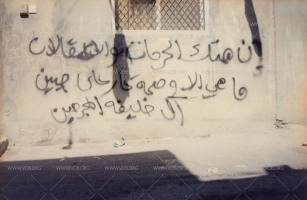 ان هتك الحرمات والاعتقالات
ما هي الا وصمة عار على جبين
آل خليفة المجرمين
WWW.VOB.ORG